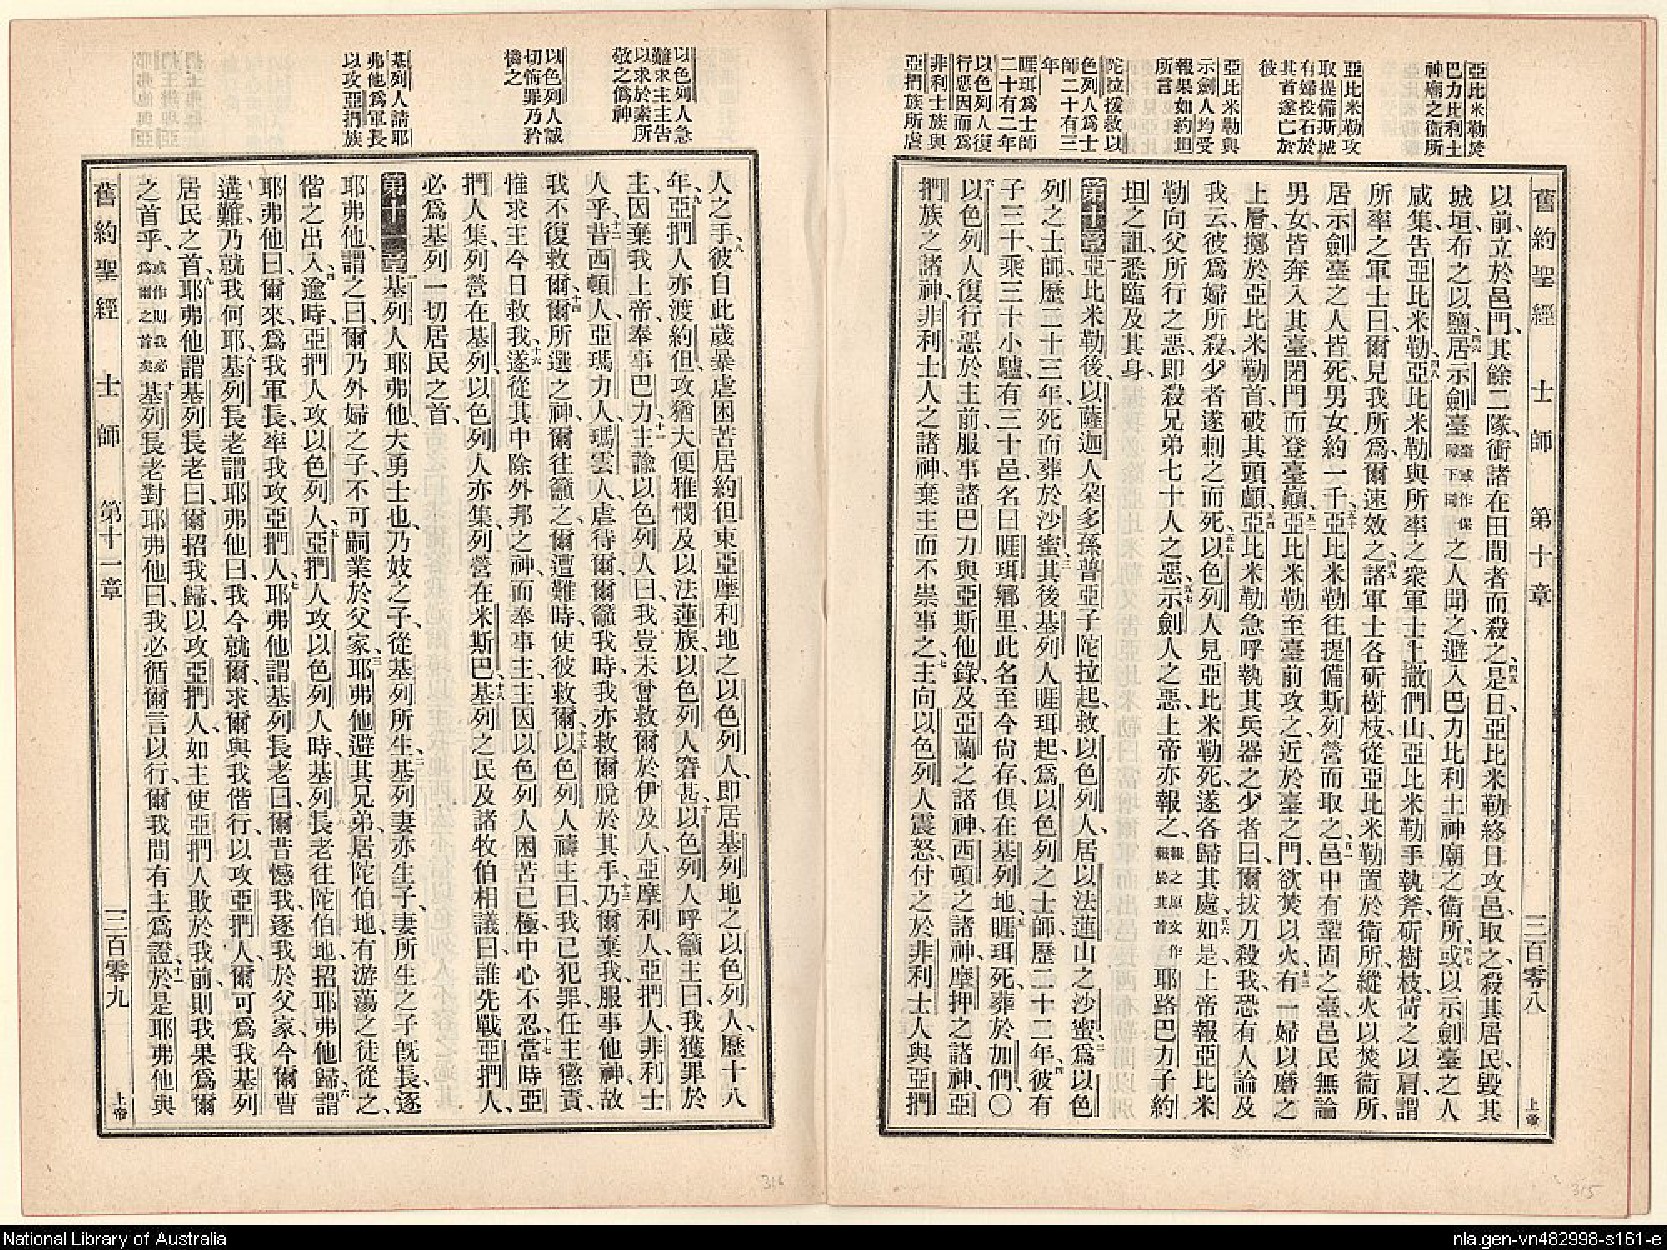 亞比米勒焚
巴力比利土
神廟之衛所
亞比米勒攻
取提備斯城
有婦投石於
其首遂亡於
彼
亞比米勒與
示劍人均受
報果如約坦
所言
陀拉拯救以
色列人爲士
師二十有三
年
睚珥爲士師
二十有二年
以色列人復
行惡因而爲
非利士族與
亞捫族所虐
舊約聖經 士師 第十章 三百零八 上帝
以前、立於邑門、其餘二隊、衝諸在田間者而殺之、四五是日亞比米勒終日攻邑、取之、殺其居民、毀其
城垣、布之以鹽、四六居示劍臺之人聞之、避入巴力比利土神廟之衛所、四七或以示劍臺之人
咸集、告亞比米勒、四八亞比米勒與所率之衆軍士、上撒們山、亞比米勒手執斧、斫樹枝、荷之以肩、謂
所率之軍士曰、爾見我所爲、爾速效之、四九諸軍士各斫樹枝、從亞比米勒、置於衛所、縱火以焚衛所、
居示劍臺之人皆死、男女約一千、五十亞比米勒往提備斯、列營而取之、五一邑中有鞏固之臺、邑民無論
男女、皆奔入其臺、閉門而登臺巔、五二亞比米勒至臺前攻之、近於臺之門、欲焚以火、五三有一婦以磨之
上層、擲於亞比米勒首、破其頭顱、五四亞比米勒急呼執其兵器之少者曰、爾拔刀殺我、恐有人論及
我云、彼爲婦所殺、少者遂刺之而死、五五以色列人見亞比米勒死、遂各歸其處、五六如是、上帝報亞比米
勒向父所行之惡、即殺兄弟七十人之惡、五七示劍人之惡、上帝亦報之、報之原文作報於其首耶路巴力子約
坦之詛、悉臨及其身、
第十章一亞比米勒後、以薩迦人朶多孫普亞子陀拉起、救以色列人、居以法蓮山之沙蜜、二爲以色
列之士師、歷二十三年、死而葬於沙蜜、三其後基列人睚珥起、爲以色列之士師、歷二十二年、四彼有
子三十、乘三十小驢、有三十邑、名曰睚珥鄉里、此名至今尚存、俱在基列地、五睚珥死、葬於加們、〇
六以色列人復行惡於主前、服事諸巴力與亞斯他錄、及亞蘭之諸神、西頓之諸神、摩押之諸神、亞
捫族之諸神、非利士人之諸神、棄主而不崇事之、七主向以色列人震怒、付之於非利士人與亞捫
315
以色列人急
難求主主告
以求於素所
敬之僞神
以色列人誠
切悔罪乃矜
憐之
基列人請耶
弗他爲軍長
以攻亞捫族
人之手、八彼自此歲暴虐困苦居約但東亞摩利地之以色列人、即居基列地之以色列人、歷十八
年、九亞捫人亦渡約但、攻猶大便雅憫及以法蓮族、以色列人窘甚、十以色列人呼籲主曰、我獲罪於
主、因棄我上帝、奉事巴力、十一主諭以色列人曰、我豈未曾救爾於伊及人、亞摩利人、亞捫人、非利士
人乎、十二昔西頓人、亞瑪力人、瑪雲人、虐待爾、爾籲我時、我亦救爾脫於其手、十三乃爾棄我、服事他神、故
我不復救爾、十四爾所選之神、爾往籲之、爾遭難時、使彼救爾、十五以色列人禱主曰、我已犯罪、任主懲責、
惟求主今日救我、十六遂從其中除外邦之神、而奉事主、主因以色列人困苦已極、中心不忍、十七當時亞
捫人集、列營在基列、以色列人亦集、列營在米斯巴、十八基列之民及諸牧伯相議曰、誰先戰亞捫人、
必爲基列一切居民之首、
第十一章一基列人耶弗他、大勇士也、乃妓之子、從基列所生、二基列妻亦生子、妻所生之子旣長、逐
耶弗他、謂之曰、爾乃外婦之子、不可嗣業於父家、三耶弗他避其兄弟、居陀伯地、有游蕩之徒從之、
偕之出入、四逾時、亞捫人攻以色列人、五亞捫人攻以色列人時、基列長老往陀伯地、招耶弗他歸、六謂
耶弗他曰、爾來爲我軍長、率我攻亞捫人、七耶弗他謂基列長老曰、爾昔憾我、逐我於父家、今爾曹
遘難、乃就我何耶、八基列長老謂耶弗他曰、我今就爾、求爾與我偕行、以攻亞捫人、爾可爲我基列
居民之首、九耶弗他謂基列長老曰、爾招我歸、以攻亞捫人、如主使亞捫人敗於我前、則我果爲爾
之首乎、或作則我必爲爾之首矣十基列長老對耶弗他曰、我必循爾言以行、爾我間有主爲證、十一於是耶弗他與
舊約聖經 士師 第十一章 三百零九 上帝
316
National Library of Australia
nla.gen-vn482998-s161-e